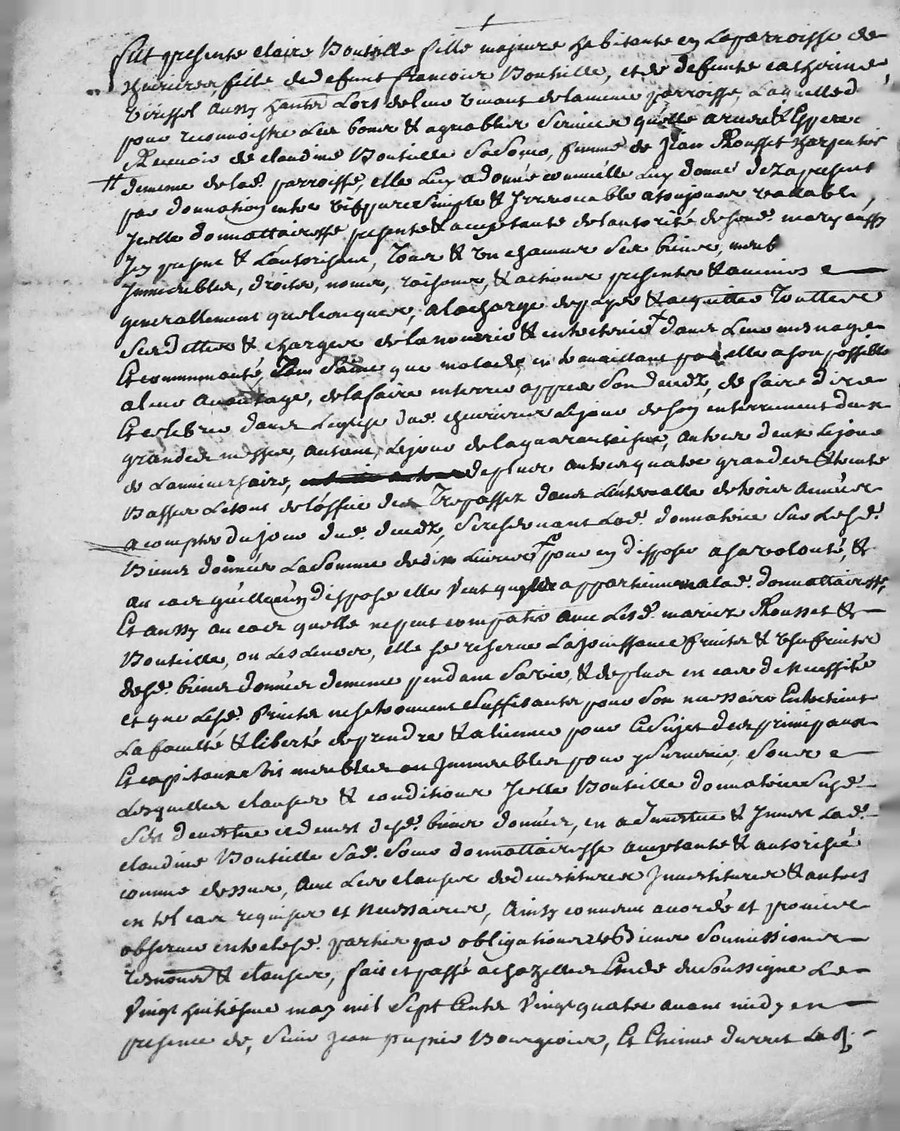 fut presente claire Bouteille fille majeure habitante en la parroisse de
cheurieres fille de defunt francois Bouteille, et de defunte catherine
aussy hantes lors de leur vivant de la meme parroisse, laquelle d
pour reconnoistre les bons & agreables services qu'elle a receu & espere
Recevoir de claudine Bouteille sa soeur, femme de Jean Rousset charpentier
dememe de lad. parroisse, elle luy a donné comme elle luy donne dez apresent
par donnation entre vifs pure simple & Irrevocable a toujours vallable
Icelle donnattairesse presente & acceptante de l'autorité de sond. mary aussy
Icy present & l'autorisant, tous & un chacuns ses biens, meub
Immeubles, droits, noms, raisons & actions presents & advenirs
generallement quelconques, a la charge de payer & acquitter touttes
ses dettes & charges de la nourrir & entretenir dans leur mesnage
Et communauté tant saine que malade en travaillant par elle a son possible
a leur avantage, de la faire enterrer appres son decedz, de faire dire
Et celebrer dans l'eglise dud. cheurieres le jour de son enterrement deux
grandes messes, autant le jour de la quarantaine, autres deux le jour
de l'anniversaire, de plus autres quatre grandes & trente
Basses le tout de l'office des Trepassez dans l'intervalle de trois années
a compter du jour dud. decedz, se reservant lad. donnatrice sur lesd.
Biens donnés la somme de dix livres pour en disposer a sa volonté, &
au cas qu'elle n'en dispose elle veut qu'elle appartienne a lad. donnattairesse,
Et aussy au cas quelle ne peut compatir avec lesd. mariez Rousset &
Bouteille, ou les leurs, elle se reserve la jouissance fruits & usufruits
desd. biens donnés dememe pendant sa vie, & de plus en cas de necessité
et que lesd. fruits ne se trouvent suffisants pour son necessaire Entretient
La faculté & liberté de prendre & aliener pour ce sujet des principaux
Et capitaux soit meubles ou Immeubles pour y survenir, sous
Lesquelles clauses & conditions Icelle Bouteille donnatrice susd.
s'est demettue et demet desd. biens donnés, en a Investue & Invest lad.
claudine Bouteille sad. soeur donnattairesse acceptante & autorisée
comme dessus, avec les clauses de devestitures Investitures & autres
en tel cas requises et necessaires, Ainsy convenu accordé et promis
observer entre lesd. parties par obligations de Biens soumissions
renonces & clauses, fait et passé a chazelles Etude du soussigné le
vingt huitiesme may mil sept cents vingt quatre avant midy en
presence de, sieur Jean pupier Bourgeois, Et Etienne